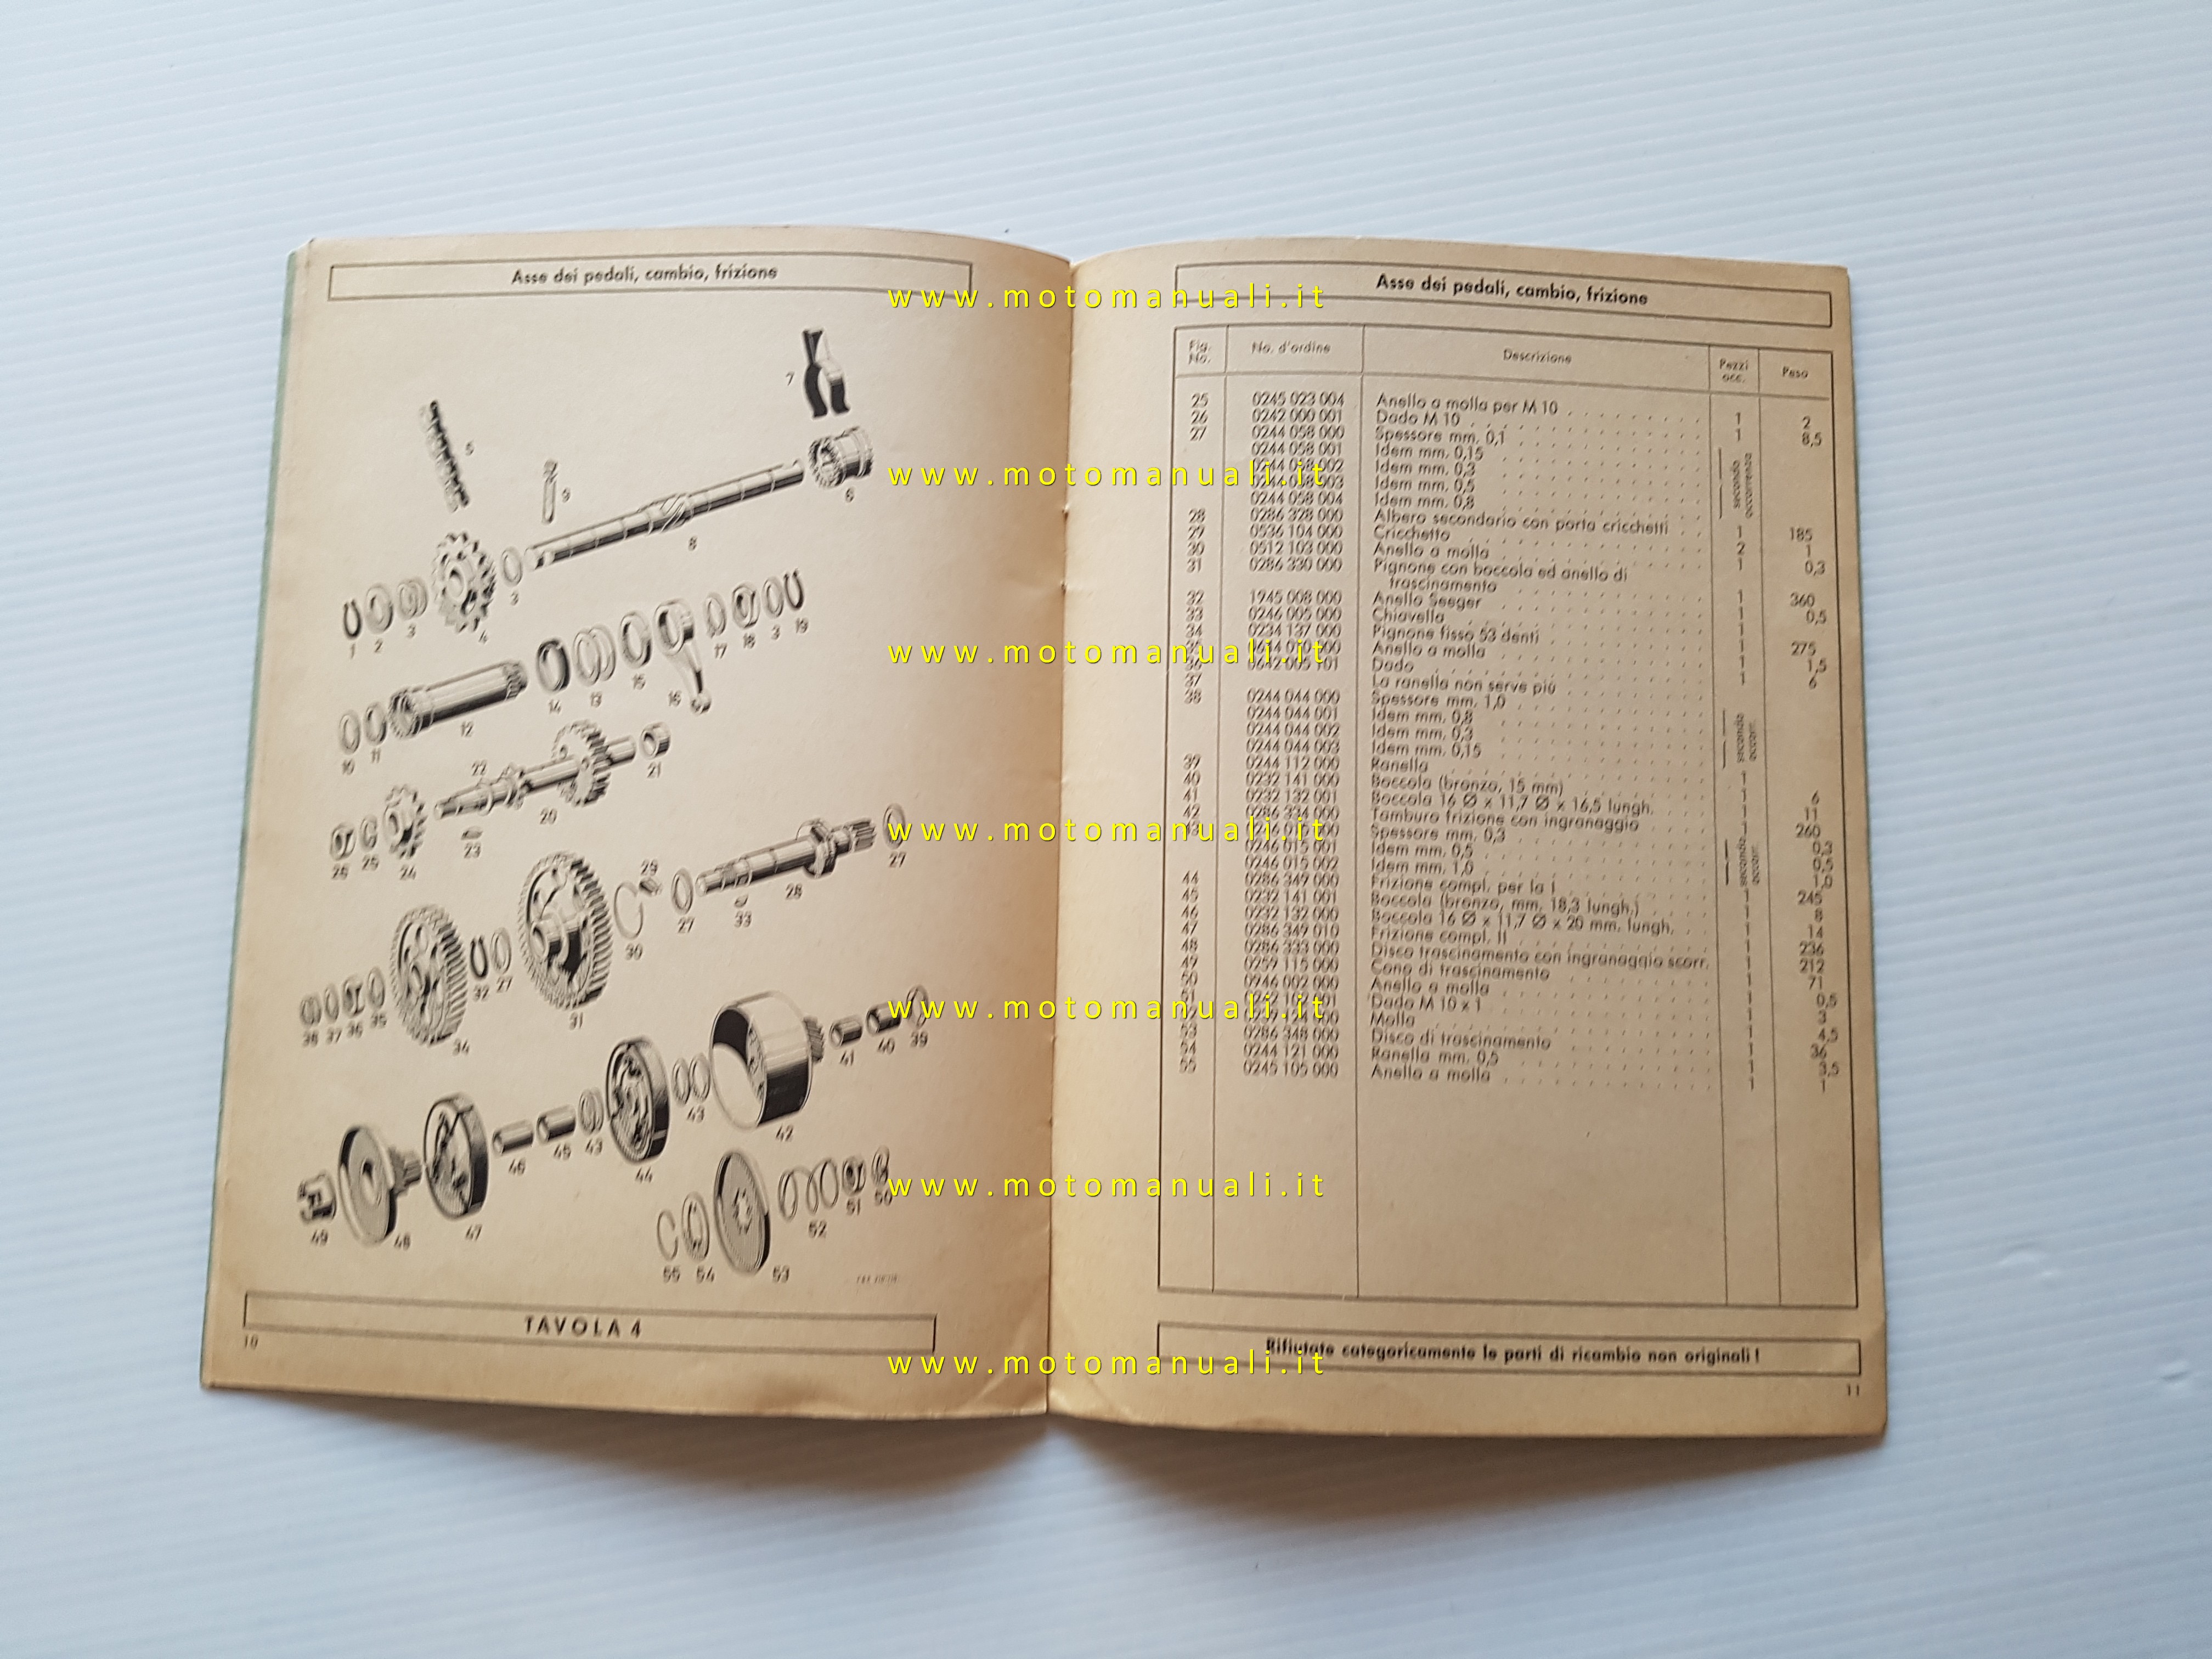 Asse dei pedali, cambio, frizione
7
5
9
6
8
3
1 2 3 4
19
3
18
17
16
15
13
14
12
11
10
22
21
20
23
26 25 24
27
29
28
33
27
30
31
32 27
38 37 36 35
34
39
40
41
42
43
44
43
45
46
47
48
49
50
51
52
53
54
55
TAVOLA 4
10
Asse dei pedali, cambio, frizione
Fig. No. No. d'ordine Descrizione Pezzi occ. Peso
25 0245 023 004 Anello a molla per M 10 1 2
26 0242 000 001 Dado M 10 1 8,5
27 0244 058 000 Spessore mm. 0,1
0244 058 001 Idem mm. 0,15
0244 058 002 Idem mm. 0,3
0244 058 003 Idem mm. 0,5
0244 058 004 Idem mm. 0,8
secondo occorrenza
28 0286 328 000 Albero secondario con porta cricchetti 1 185
29 0536 104 000 Cricchetto 2 1
30 0512 103 000 Anello a molla 1 0,3
31 0286 330 000 Pignone con boccola ed anello di
trascinamento 1 360
32 1945 008 000 Anello Seeger 1 0,5
33 0246 005 000 Chiavella 1
34 0234 137 000 Pignone fisso 53 denti 1 275
Anello a molla 1 1,5
36 0642 005 101 Dado 1 6
37 La ranella non serve più
38 0244 044 000 Spessore mm. 1,0
0244 044 001 Idem mm. 0,8
0244 044 002 Idem mm. 0,3
0244 044 003 Idem mm. 0,15
secondo occorr.
39 0244 112 000 Ranella 1
40 0232 141 000 Boccola (bronzo, 15 mm) 1 6
41 0232 132 001 Boccola 16 Ø x 11,7 Ø x 16,5 lungh. 1 11
42 0286 334 000 Tamburo frizione con ingranaggio 1 260
43 Spessore mm. 0,3 0,3
0246 015 001 Idem mm. 0,5 0,5
0246 015 002 Idem mm. 1,0 1,0
secondo occorr.
44 0286 349 000 Frizione compl. per la I 1 245
45 0232 141 001 Boccola (bronzo, mm. 18,3 lungh.) 1 8
46 0232 132 000 Boccola 16 Ø x 11,7 Ø x 20 mm. lungh. 1 14
47 0286 349 010 Frizione compl. II 1 236
48 0286 333 000 Disco trascinamento con ingranaggio scorr. 1 212
49 0259 115 000 Cono di trascinamento 1 71
50 0946 002 000 Anello a molla 1 0,5
51 Dado M 10 x 1 1 3
Molla 1 4,5
53 0286 348 000 Disco di trascinamento 1 36
54 0244 121 000 Ranella mm. 0,5 1 3,5
55 0245 105 000 Anello a molla 1 1
Rifiutate categoricamente le parti di ricambio non originali!
11
www.motomanuali.it
www.motomanuali.it
www.motomanuali.it
www.motomanuali.it
www.motomanuali.it
www.motomanuali.it
www.motomanuali.it